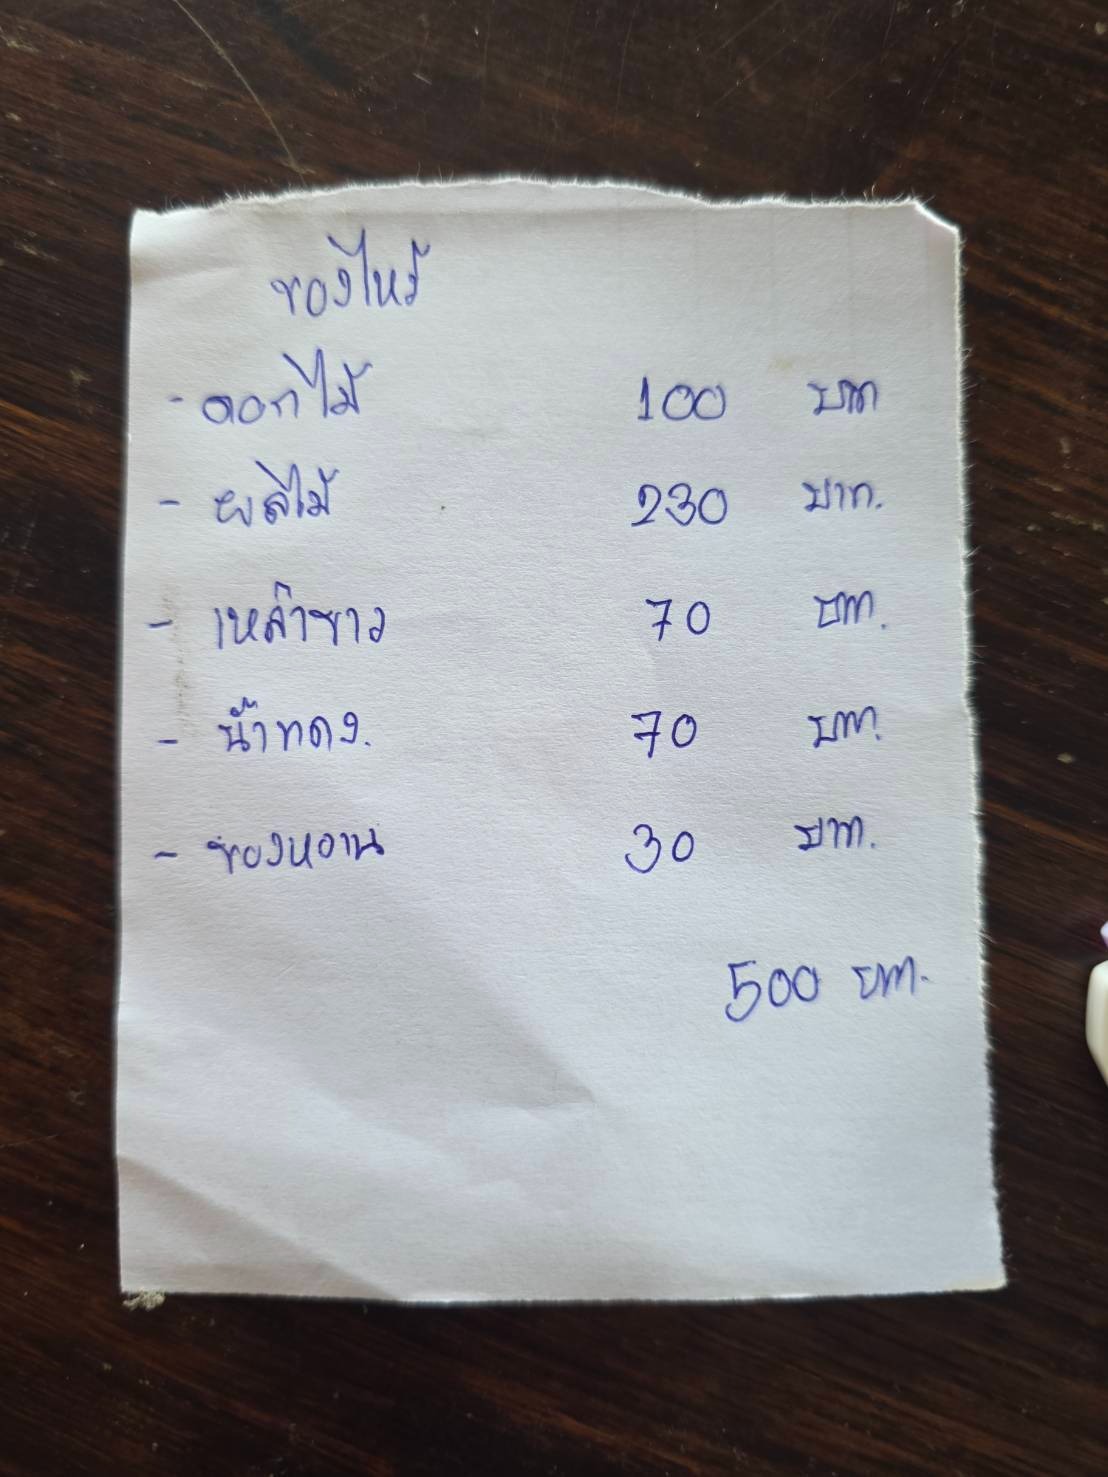 ของไหว้
- ดอกไม้ 100 บาท
- ผลไม้ 230 บาท.
- เหล้าขาว 70 บาท.
- น้ำแดง. 70 บาท.
- ของหวาน 30 บาท.
500 บาท.